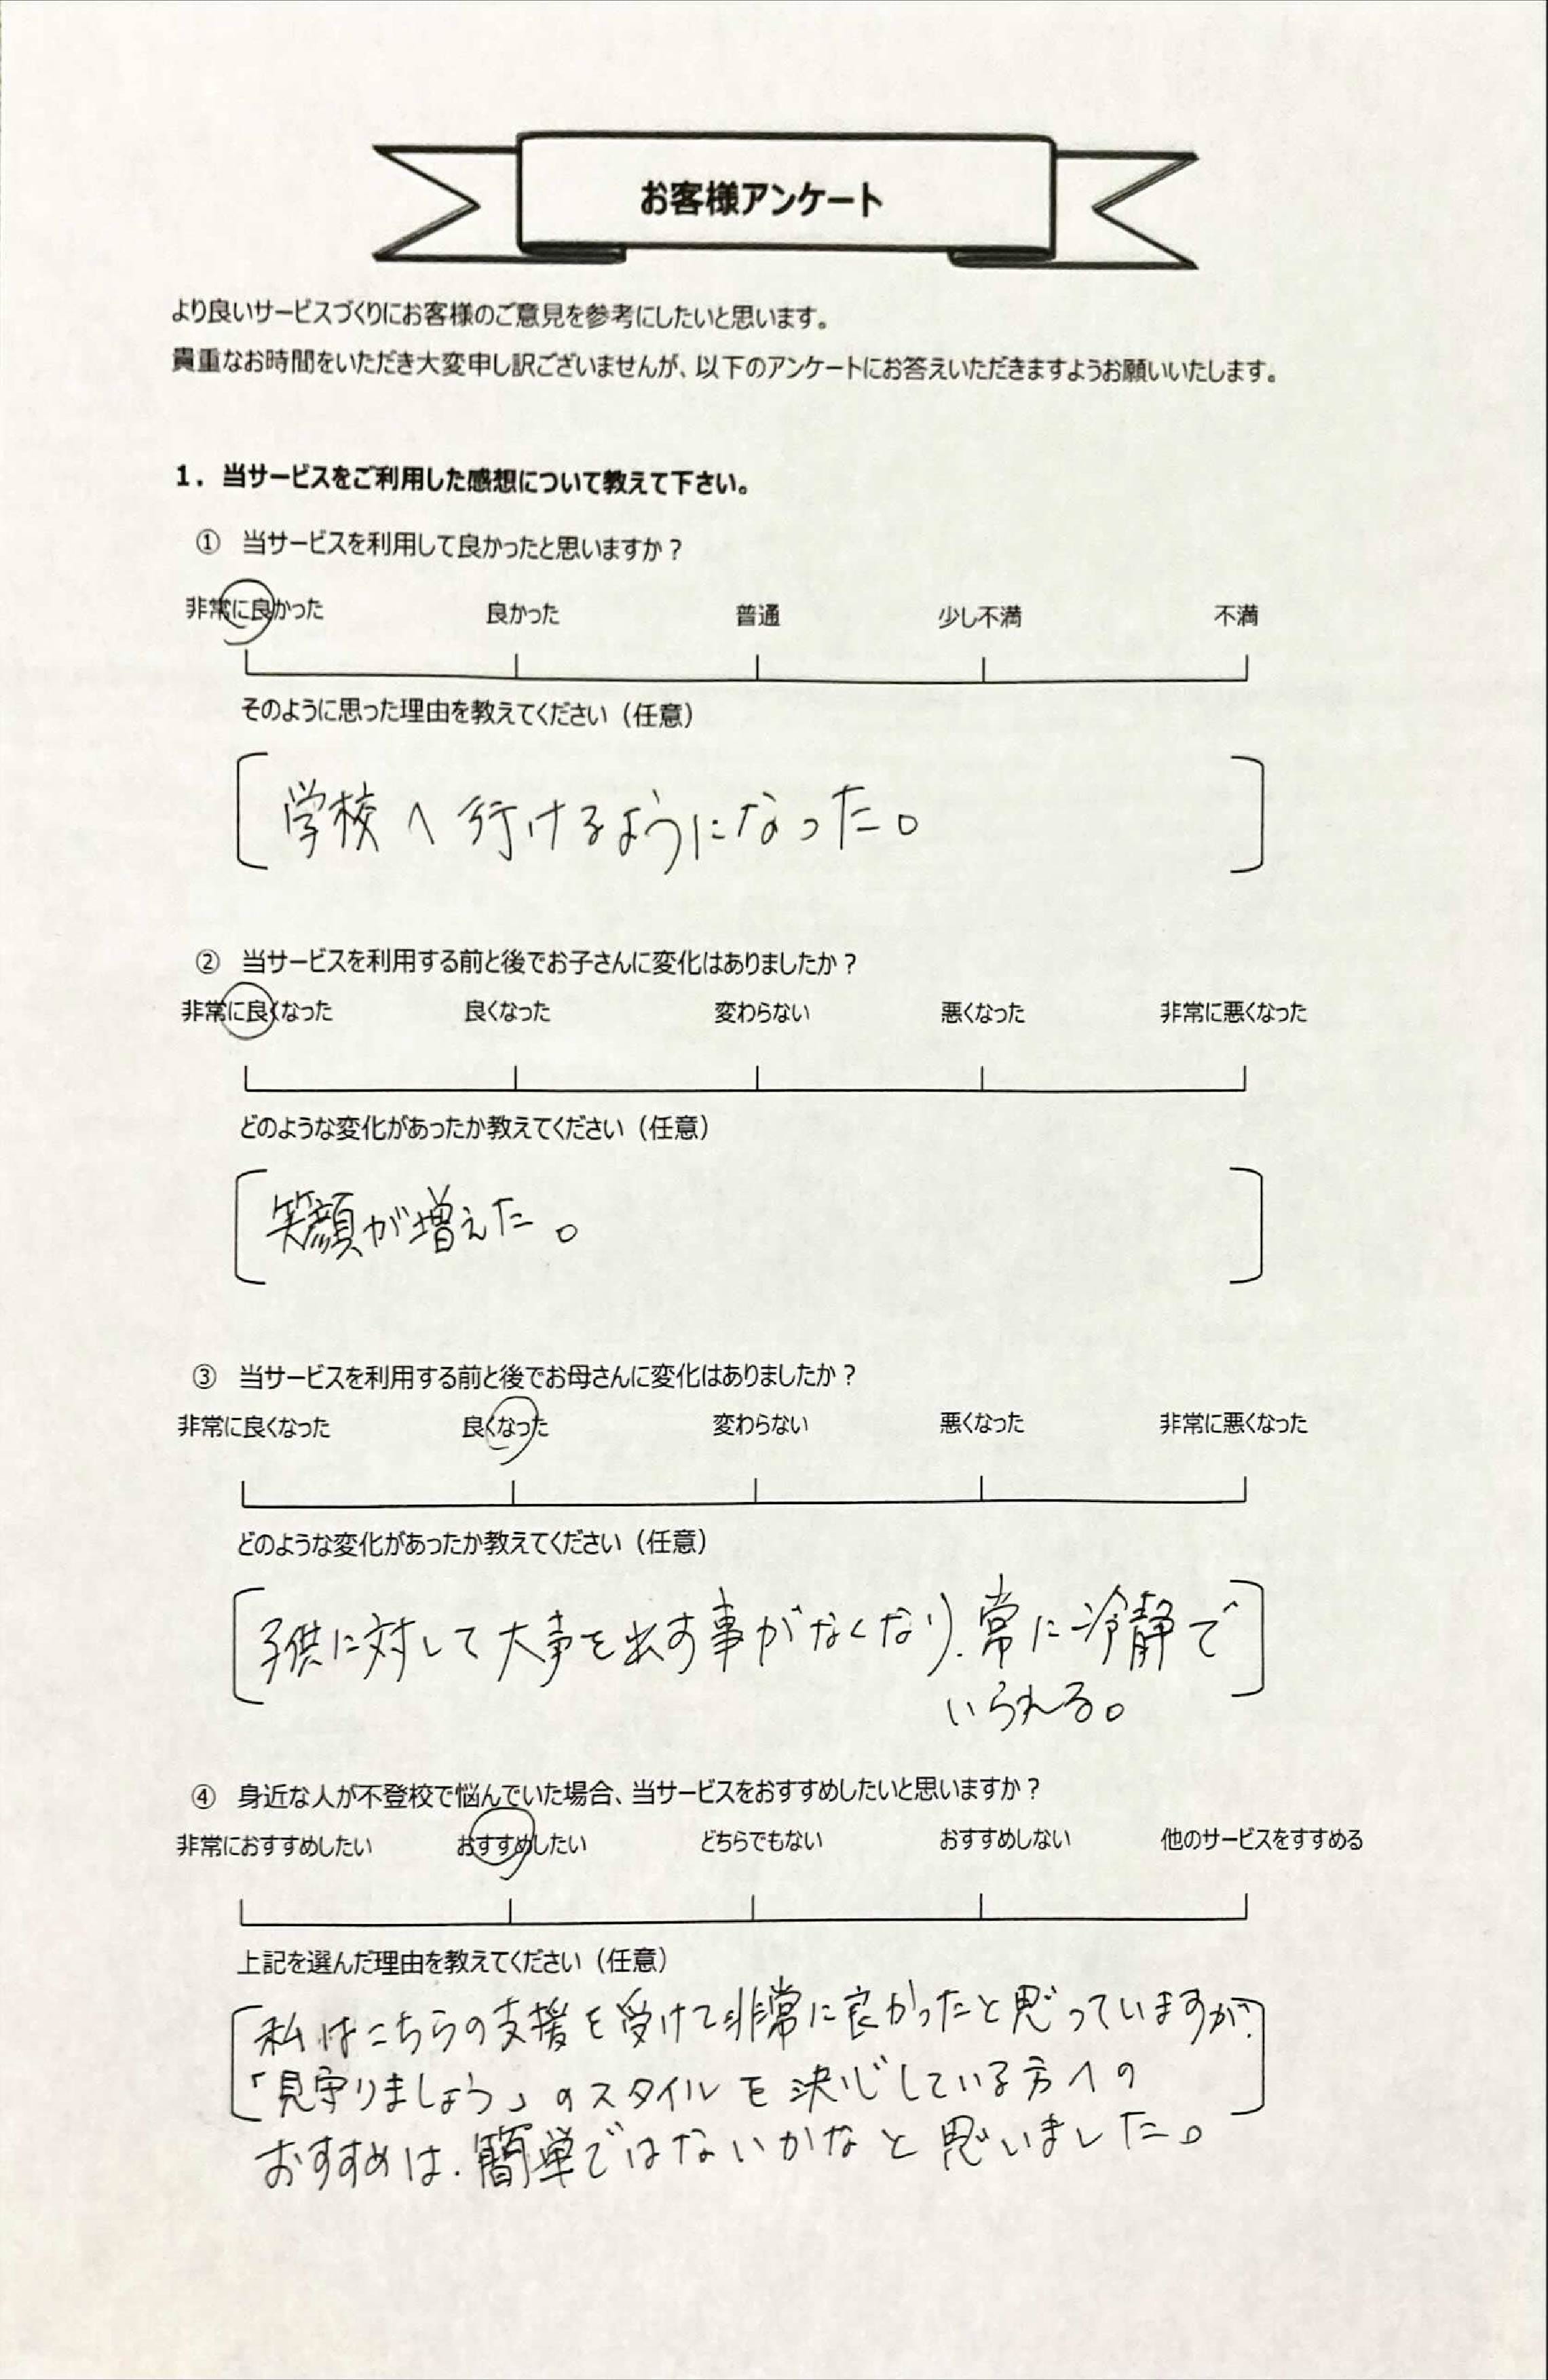 お客様アンケート
より良いサービスづくりにお客様のご意見を参考にしたいと思います。
貴重なお時間をいただき大変申し訳ございませんが、以下のアンケートにお答えいただきますようお願いいたします。
1. 当サービスをご利用した感想について教えて下さい。
① 当サービスを利用して良かったと思いますか?
非常に良かった 良かった 普通 少し不満 不満
そのように思った理由を教えてください(任意)
学校へ行けるようになった。
② 当サービスを利用する前と後でお子さんに変化はありましたか?
非常に良くなった 良くなった 変わらない 悪くなった 非常に悪くなった
どのような変化があったか教えてください(任意)
笑顔が増えた。
③ 当サービスを利用する前と後でお母さんに変化はありましたか?
非常に良くなった 良くなった 変わらない 悪くなった 非常に悪くなった
どのような変化があったか教えてください(任意)
子供に対して大声を出す事がなくなり、常に冷静で
いられる。
④ 身近な人が不登校で悩んでいた場合、当サービスをおすすめしたいと思いますか?
非常におすすめしたい おすすめしたい どちらでもない おすすめしない 他のサービスをすすめる
上記を選んだ理由を教えてください(任意)
私はこちらの支援を受けて非常に良かったと思っていますが、
「見守りましょう」のスタイルを決心している方への
おすすめは、簡単ではないかなと思いました。